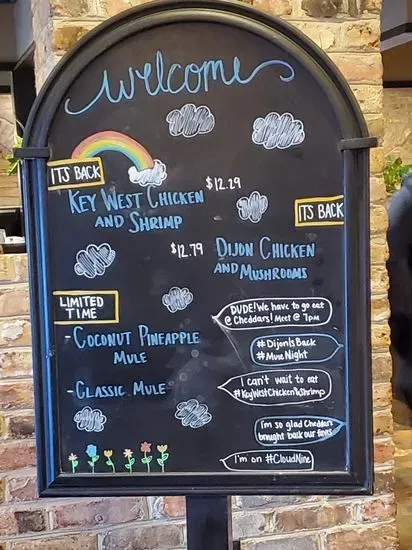 welcome
ITS BACK
KEY WEST CHICKEN
AND SHRIMP
$12.29
ITS BACK
$12.79
DIJON CHICKEN
AND MUSHROOMS
LIMITED
TIME
-COCONUT PINEAPPLE
MULE
-CLASSIC MULE
DUDE! We have to go eat
@ Cheddars! Meet @ 7PM
#DijonIsBack
#MuleNight
I can't wait to eat
#KeyWestChicken&Shrimp
I'm so glad Cheddars
brought back our faves
I'm on #CloudNine